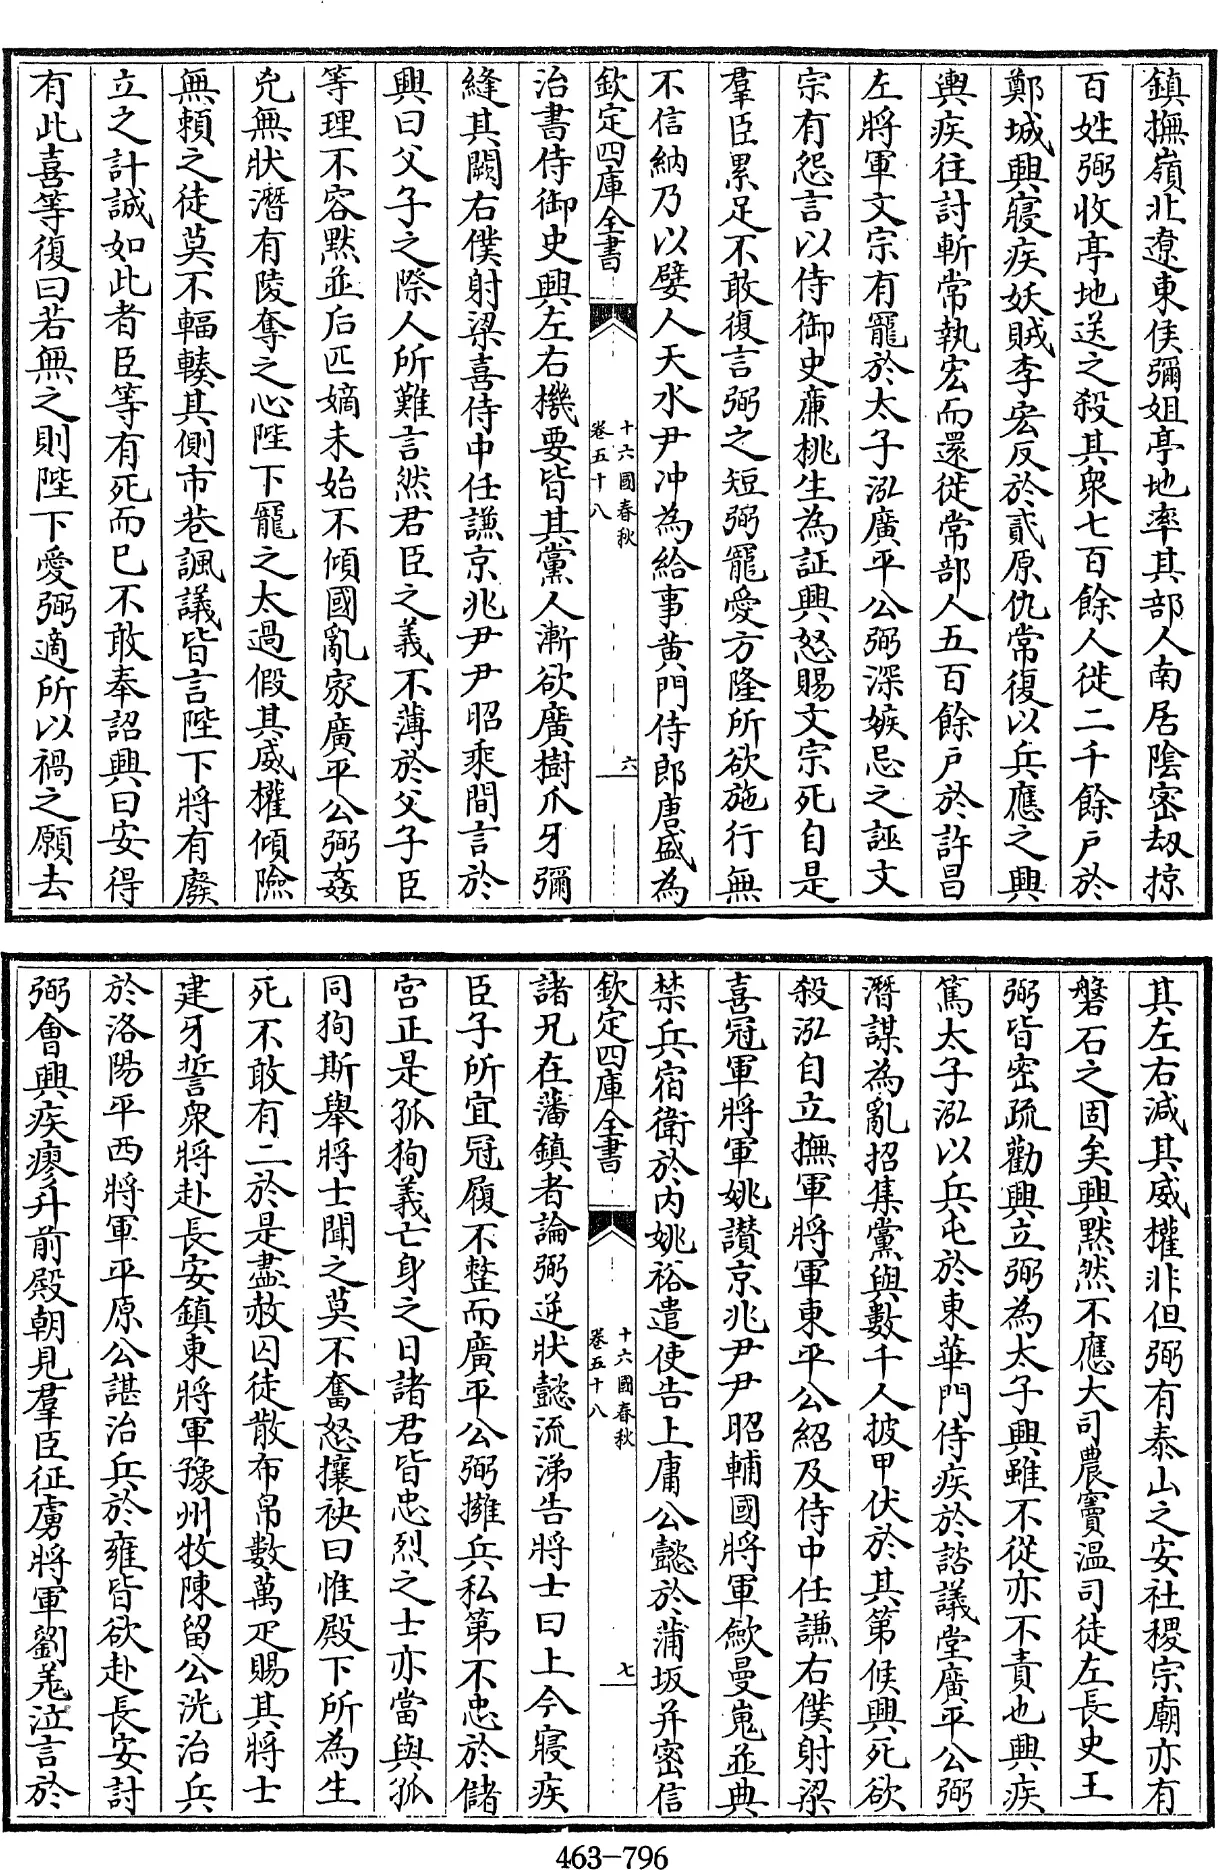 鎮撫嶺北遼東侯彌姐亭地率其部人南居陰密劫掠
百姓弼收亭地送之殺其衆七百餘人徙二千餘戶於
鄭城興寢疾妖賊李宏反於貳原仇常復以兵應之興
輿疾往討斬常執宏而還徙常部人五百餘戶於許昌
左將軍文宗有寵於太子泓廣平公弼深嫉忌之誣文
宗有怨言以侍御史亷桃生為証興怒賜文宗死自是
羣臣累足不敢復言弼之短弼寵愛方隆所欲施行無
不信納乃以嬖人天水尹冲為給事黄門侍郎唐盛為
欽定四庫全書
十六國春秋
卷五十八
六
治書侍御史興左右機要皆其黨人漸欲廣樹爪牙彌
縫其闕右僕射梁喜侍中任謙京兆尹尹昭乘間言於
興曰父子之際人所難言然君臣之義不薄於父子臣
等理不容黙並后匹嫡未始不傾國亂家廣平公弼姦
兇無狀潛有陵奪之心陛下寵之太過假其威權傾險
無賴之徒莫不輻輳其側市巷諷議皆言陛下將有廢
立之計誠如此者臣等有死而已不敢奉詔興曰安得
有此喜等復曰若無之則陛下愛弼適所以禍之願去
其左右減其威權非但弼有泰山之安社稷宗廟亦有
磐石之固矣興黙然不應大司農竇温司徒左長史王
弼皆密疏勸興立弼為太子興雖不從亦不責也興疾
篤太子泓以兵屯於東華門侍疾於諮議堂廣平公弼
潛謀為亂招集黨與數千人披甲伏於其第候興死欲
殺泓自立撫軍將軍東平公紹及侍中任謙右僕射梁
喜冠軍將軍姚讃京兆尹尹昭輔國將軍歛曼嵬並典
禁兵宿衛於内姚裕遣使告上庸公懿於蒲坂并密信
欽定四庫全書
十六國春秋
卷五十八
七
諸兄在藩鎮者論弼逆狀懿流涕告將士曰上今寢疾
臣子所宜冠履不整而廣平公弼擁兵私第不忠於儲
宮正是孤狥義亡身之日諸君皆忠烈之士亦當與孤
同狥斯舉將士聞之莫不奮怒攘袂曰惟殿下所為生
死不敢有二於是盡赦囚徒散布帛數萬疋賜其將士
建牙誓衆將赴長安鎮東將軍豫州牧陳留公洸治兵
於洛陽平西將軍平原公諶治兵於雍皆欲赴長安討
弼會興疾瘳升前殿朝見羣臣征虜將軍劉羗泣言於
463-796